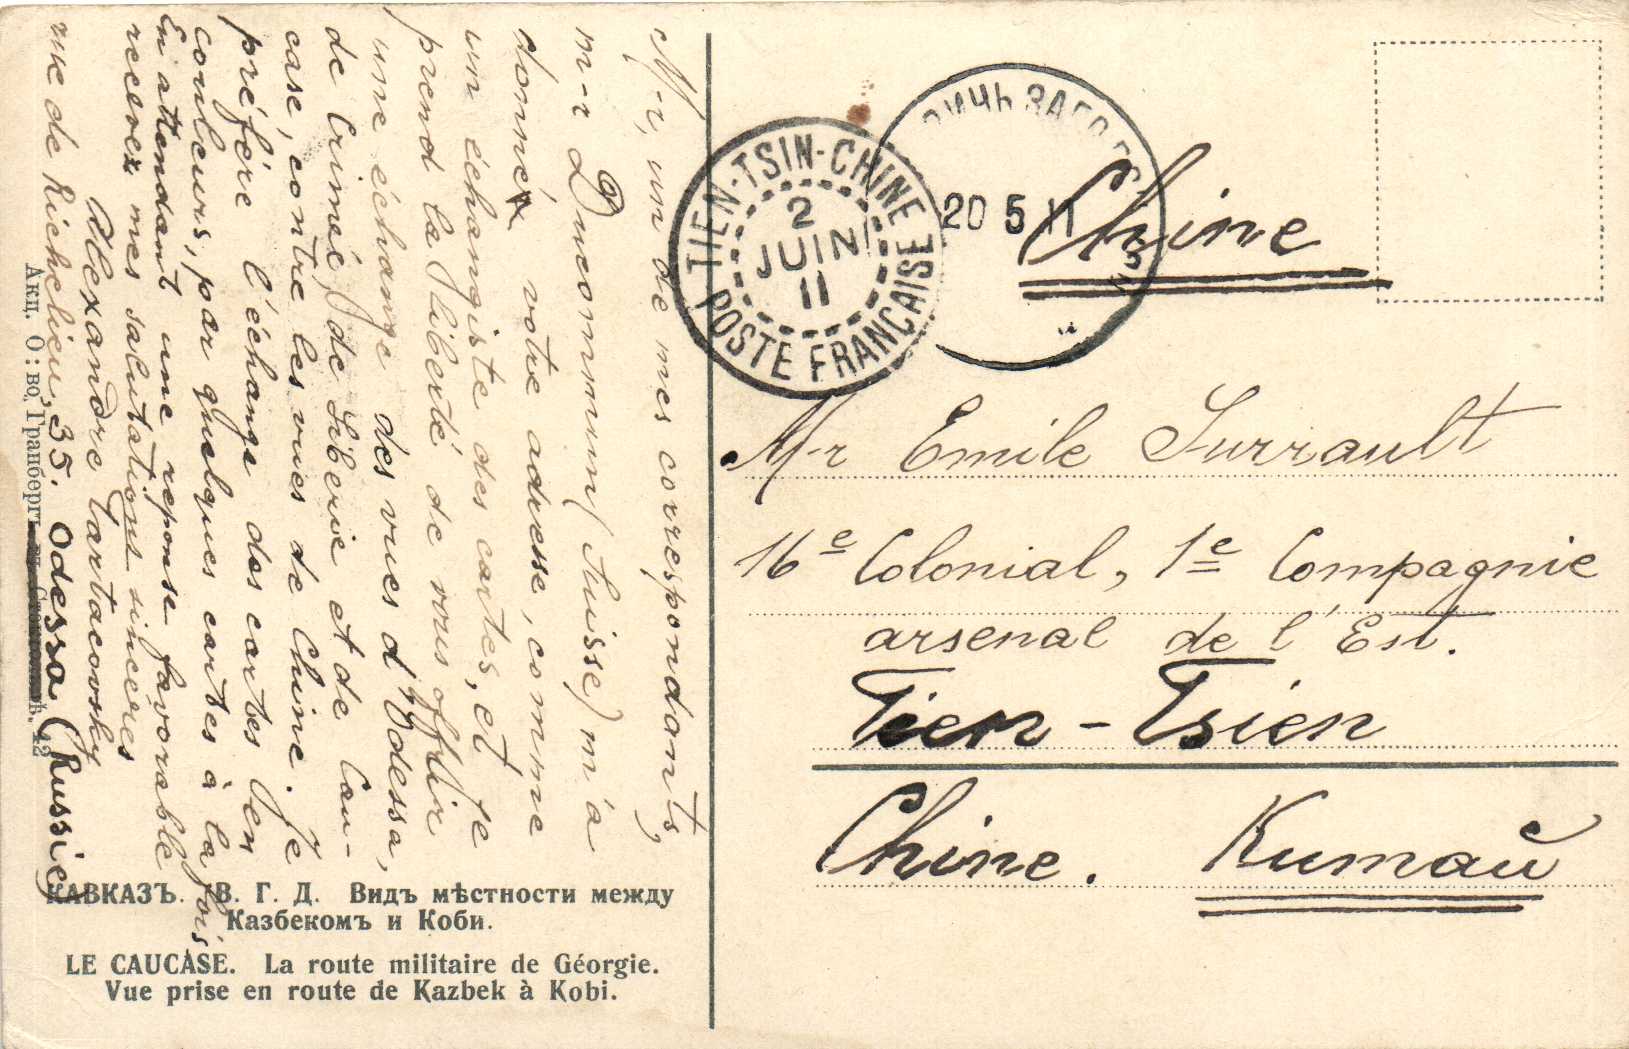 M-r, un de mes correspondants,
m-r Ducommun (Suisse) m'a
donné votre adresse, comme
un échangiste des cartes, et je
prend la liberté de vous offrir
une échange des vues d'Odessa,
de Crimé, de Sibérie et de Cau-
case, contre les vues de Chine. Je
préfère l'échange des cartes en
couleurs, par quelques cartes à la fois
En attendant une réponse favorable
recevez mes salutations sincères
Alexandre Tartacovsky
rue de Richelieu, 35. Odessa (Russie)
Акц. О:во Гранбергъ въ Стокгольмѣ. 42
КАВКАЗЪ. В. Г. Д. Видъ мѣстности между
Казбекомъ и Коби.
LE CAUCASE. La route militaire de Géorgie.
Vue prise en route de Kazbek à Kobi.
TIEN-TSIN-CHINE
2
JUIN
11
POSTE FRANCAISE
20 5 11
Chine
M-r Emile Surrault
16e Colonial, 1e Compagnie
arsenal de l'Est.
Tien-Tsien
Chine. Китай